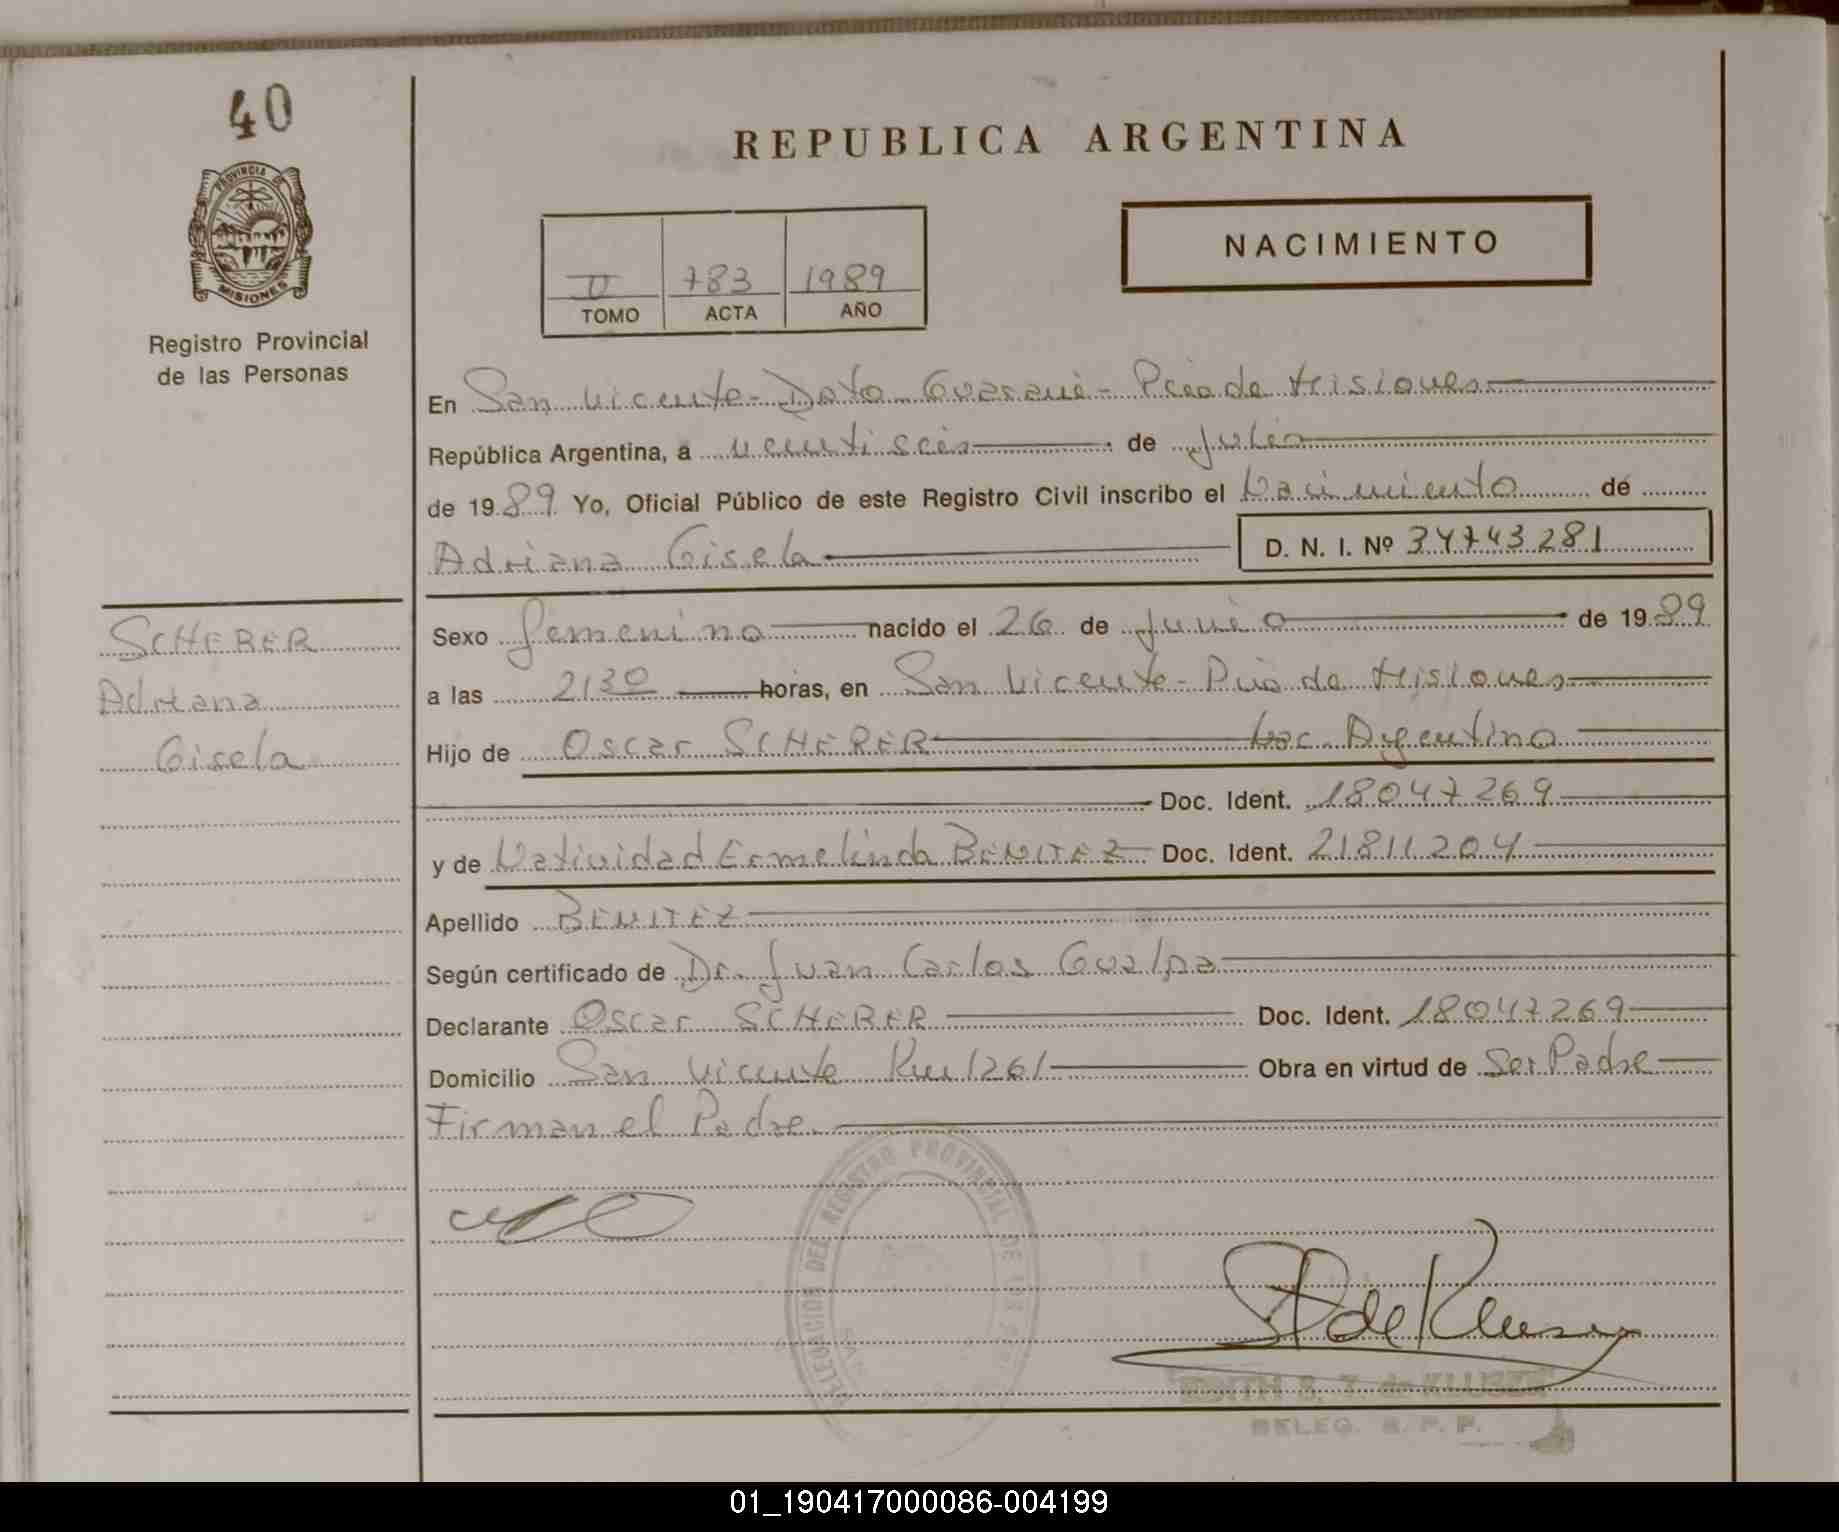 40
PROVINCIA DE
MISIONES
Registro Provincial
de las Personas
SCHERER
Adriana
Gisela
REPUBLICA ARGENTINA
NACIMIENTO
II 783 1989
TOMO ACTA AÑO
En San Vicente - Dpto Guaraní - Pcia de Misiones
República Argentina, a veintiseis de Julio
de 1989 Yo, Oficial Público de este Registro Civil inscribo el Nacimiento de
Adriana Gisela D. N. I. Nº 34743281
Sexo femenino nacido el 26 de Junio de 1989
a las 2130 horas, en San Vicente - Pcia de Misiones
Hijo de Oscar SCHERER Nac. Argentino
Doc. Ident. 18047269
y de Natividad Ermelinda BENITEZ Doc. Ident. 21811204
Apellido BENITEZ
Según certificado de Dr. Juan Carlos Gualpa
Declarante Oscar SCHERER Doc. Ident. 18047269
Domicilio San Vicente Km 1261 Obra en virtud de Ser Padre
Firman el Padre.
DELEGACION DEL REGISTRO PROVINCIAL DE LAS
SAN
S de Kluser
EDITH S. T. de KLUSER
DELEG. R. P. P.
01_190417000086-004199